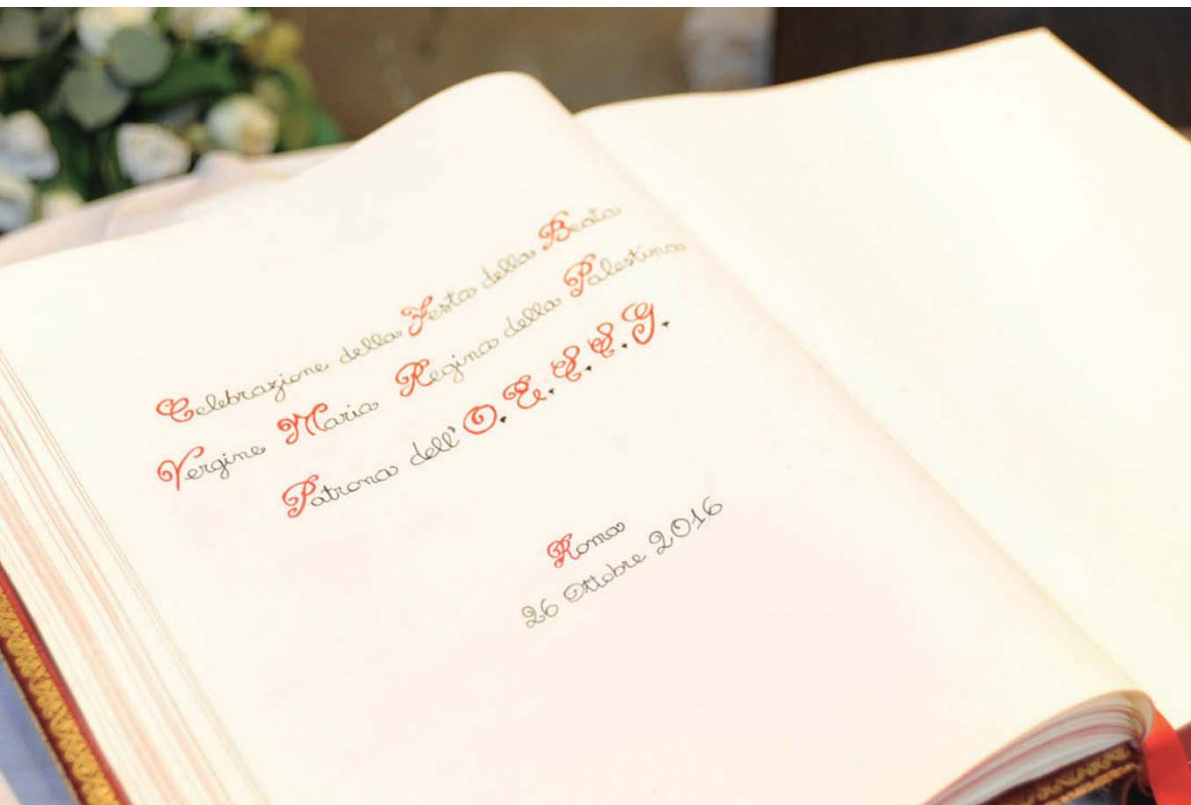 Celebrazione della Festa della Beata
Vergine Maria Regina della Palestina
Patrona dell' O. E. S. S. G.
Roma
26 Ottobre 2016